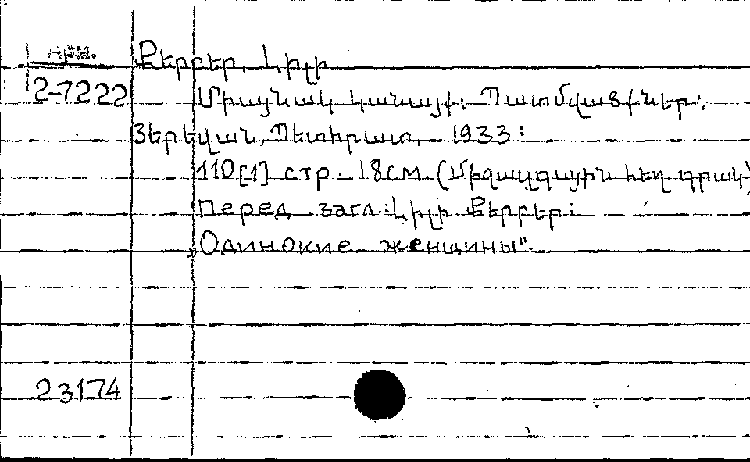 арм.
Քերբեր, Լիլի
2-7222
Միայնակ կանայք: Պատմվածքներ:
Յերեվան, Պետհրատ, 1933:
110[1] стр. 18см (Միջազգային հեղ գրակ)
Перед загл: Լիլի Քերբեր:
„Одинокие женщины".
23174